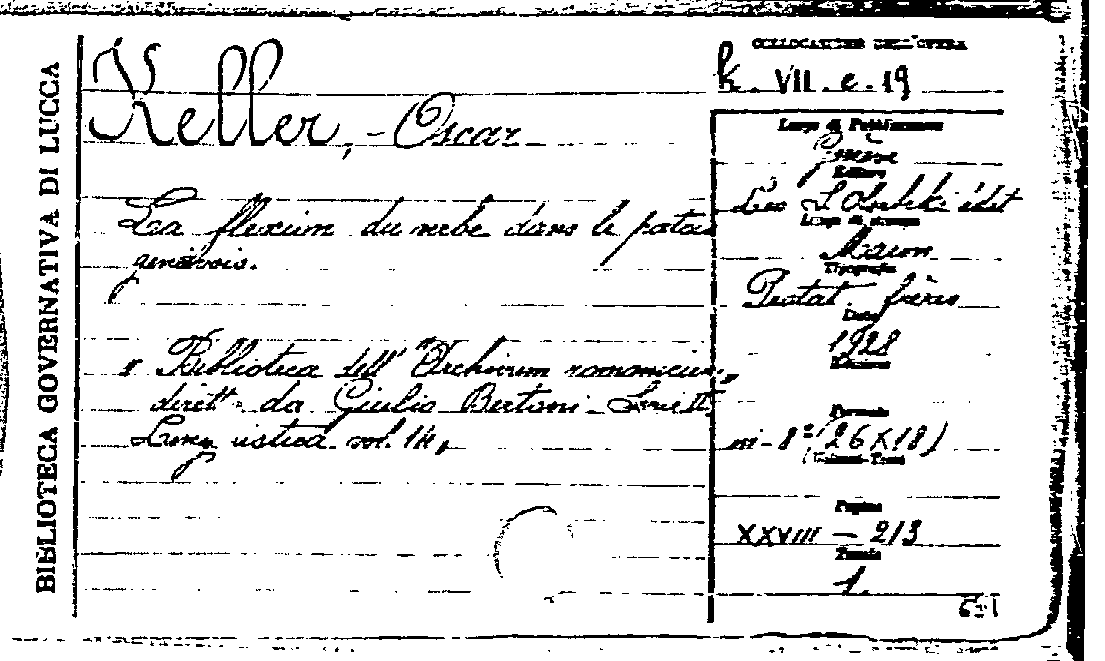 BIBLIOTECA GOVERNATIVA DI LUCCA
Keller, - Oscar
La flexion du verbe dans le patois
genevois.
" Biblioteca dell' "Archivum romanicum"
dirett. da Giulio Bertoni -
Linguistica. vol. 14"
COLLOCAZIONE DELL'OPERA
k. VII. e. 19
Luogo di Pubblicazione
Genève
Editore
Leo S. Olschki édit
Luogo di stampa
Macon
Tipografia
Protat frères
Data
1928
Edizione
Formato
in-8° (26 X 18)
Pagine
XXVIII — 213
Tavole
1.